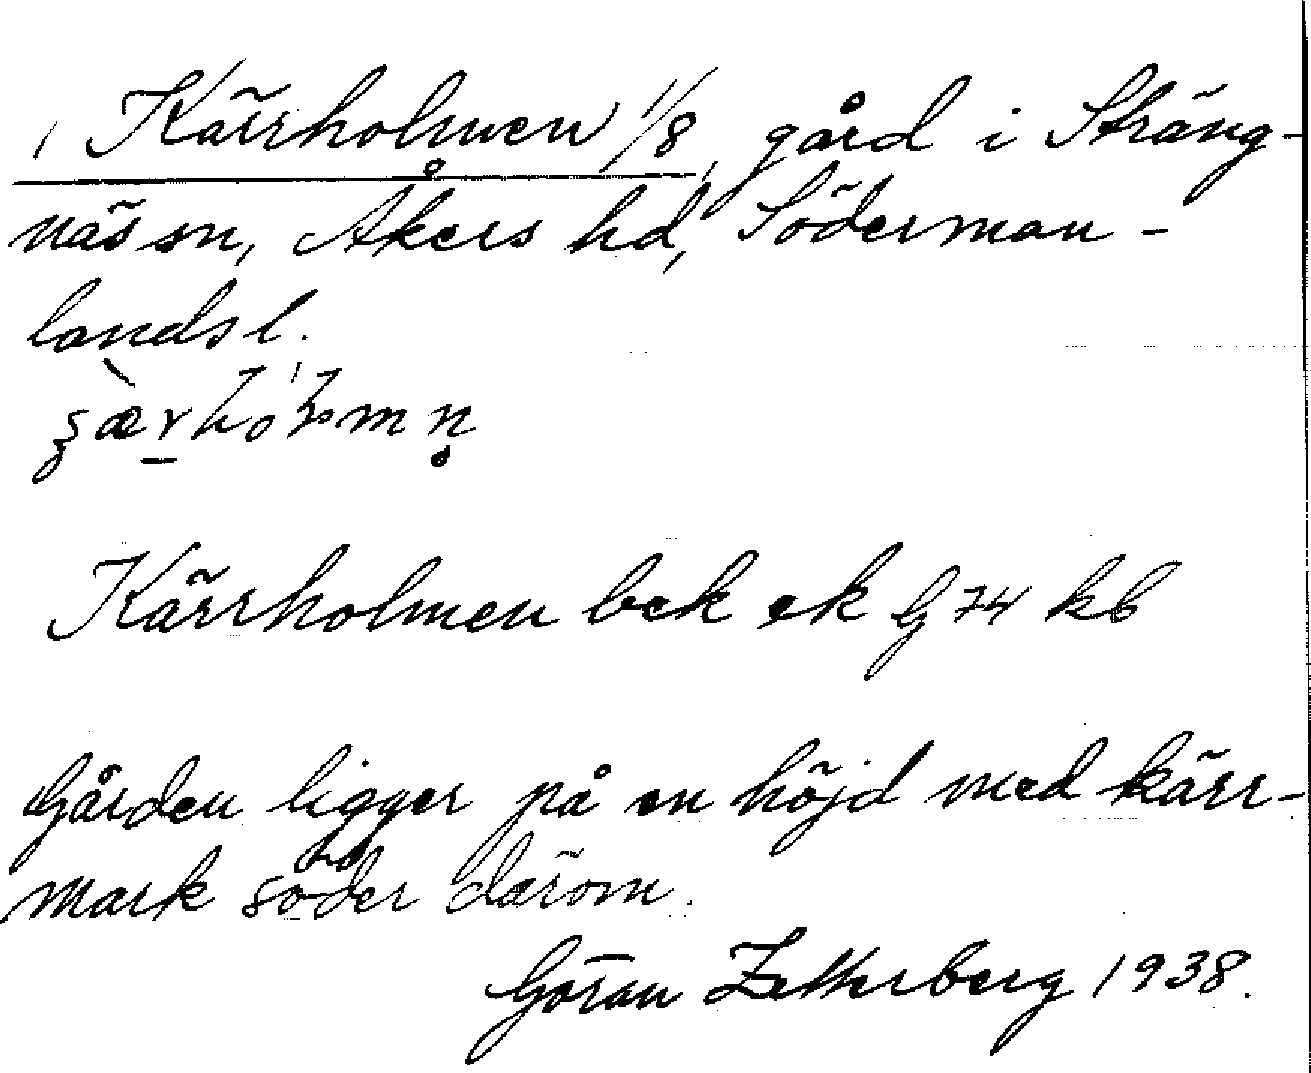 Kärrholmen 1/8, gård i Sträng-
näs sn, Åkers hd, Söderman-
lands l.
Kärrholmen bek ek G 74 kb
Gården ligger på en höjd med kärr-
mark söder därom.
Göran Zetterberg 1938.